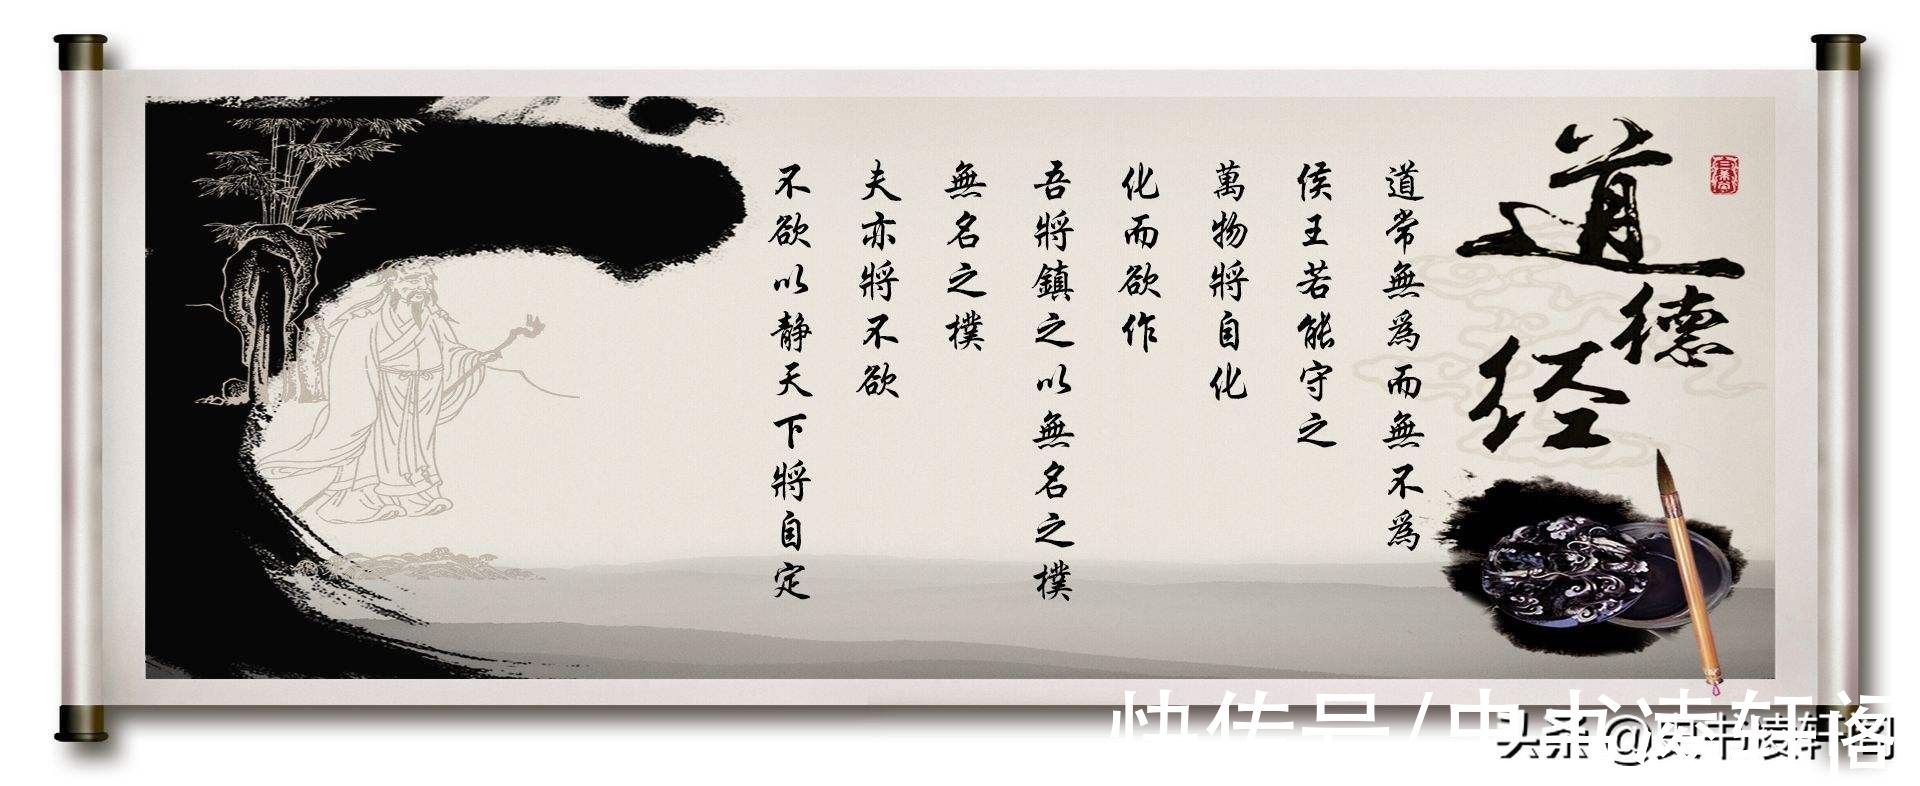 道德经
道常無為而無不為
侯王若能守之
萬物將自化
化而欲作
吾將鎮之以無名之樸
無名之樸
夫亦將不欲
不欲以静天下將自定
快传号/史书凌轩阁
头条@史书凌轩阁